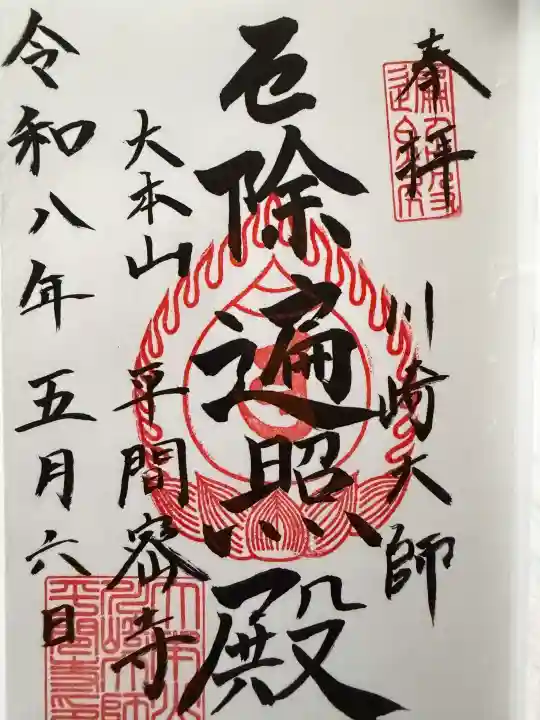 奉拝
川崎大師
厄除遍照殿
大本山 平間密寺
令和八年 五月六日